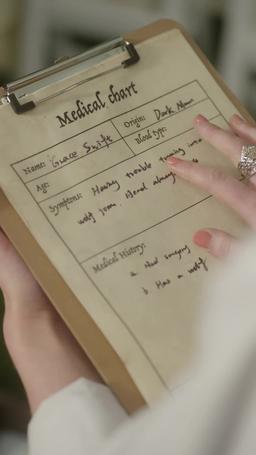 Medical chart
Name: Grace Swift
Origin: Dark Moon
Age:
Blood type:
Symptoms: Having trouble turning into
wolf form. Blood always
Medical History:
a. Had surgery
b. Has a wolf